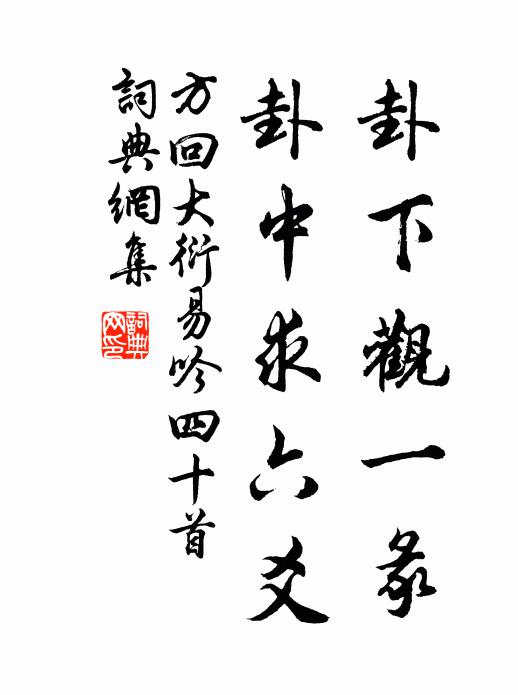 卦下觀一彖
卦中求六爻
方回大衍易吟四十首
詞典網集
詞典網印